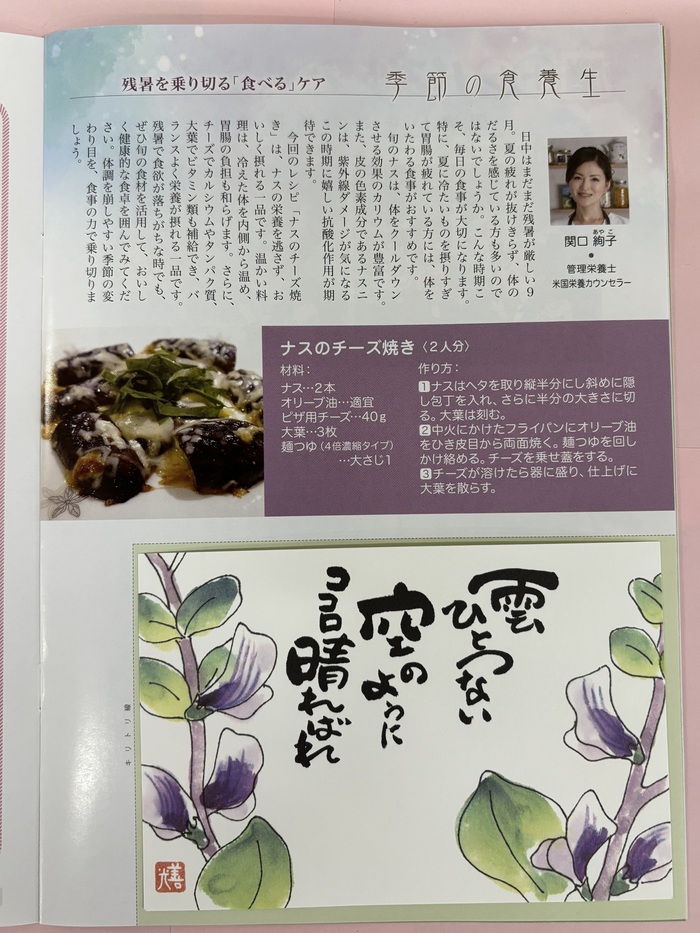 季節の食養生
残暑を乗り切る「食べる」ケア
関口 絢子
あやこ
●
管理栄養士
米国栄養カウンセラー
日中はまだまだ残暑が厳しい9
月。夏の疲れが抜けきらず、体の
だるさを感じている方も多いので
はないでしょうか。こんな時期こ
そ、毎日の食事が大切になります。
特に、夏に冷たいものを摂りすぎ
て胃腸が疲れている方には、体を
いたわる食事がおすすめです。
旬のナスは、体をクールダウン
させる効果のカリウムが豊富です。
また、皮の色素成分であるナスニ
ンは、紫外線ダメージが気になる
この時期に嬉しい抗酸化作用が期
待できます。
今回のレシピ「ナスのチーズ焼
き」は、ナスの栄養を逃さず、お
いしく摂れる一品です。温かい料
理は、冷えた体を内側から温め、
胃腸の負担も和らげます。さらに、
チーズでカルシウムやタンパク質、
大葉でビタミン類も補給でき、バ
ランスよく栄養が摂れる一品です。
残暑で食欲が落ちがちな時でも、
ぜひ旬の食材を活用して、おいし
く健康的な食卓を囲んでみてくだ
さい。体調を崩しやすい季節の変
わり目を、食事の力で乗り切りま
しょう。
ナスのチーズ焼き〈2人分〉
材料：
ナス…2本
オリーブ油…適宜
ピザ用チーズ…40g
大葉…3枚
麺つゆ（4倍濃縮タイプ）
…大さじ1
作り方：
1 ナスはヘタを取り縦半分にし斜めに隠
し包丁を入れ、さらに半分の大きさに切
る。大葉は刻む。
2 中火にかけたフライパンにオリーブ油
をひき皮目から両面焼く。麺つゆを回し
かけ絡める。チーズを乗せ蓋をする。
3 チーズが溶けたら器に盛り、仕上げに
大葉を散らす。
雲
ひとつない
空の
ように
ココロ
晴ればれ
キリトリ線